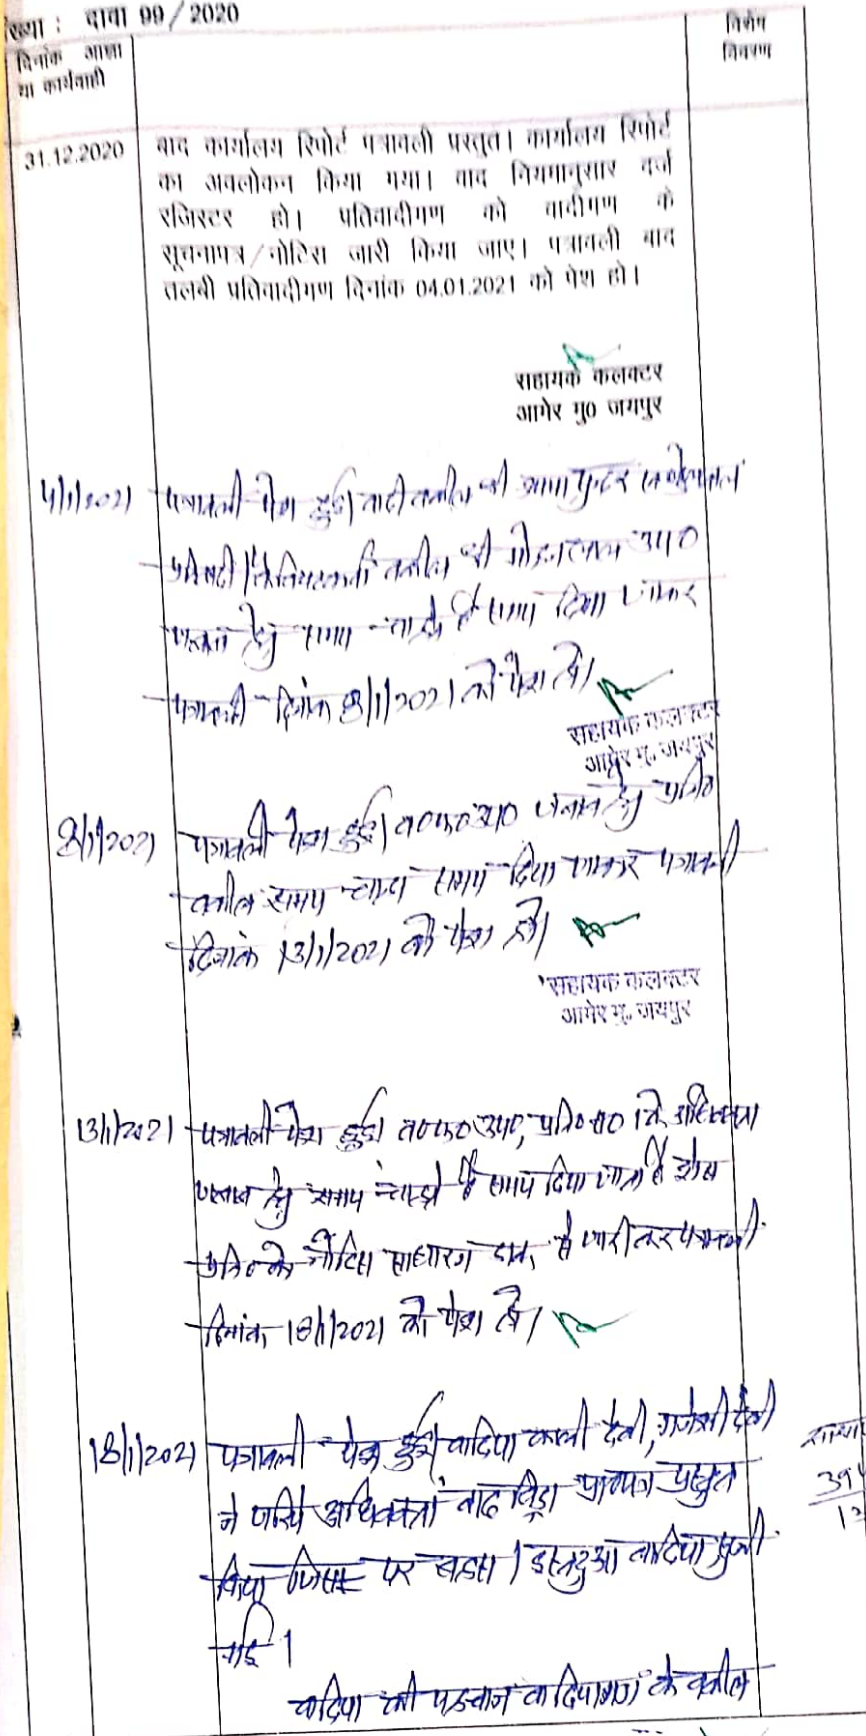 ख्या : दावा 99/2020
दिनांक आज्ञा
या कार्यवाही
विशेष
विवरण
31.12.2020
बाद कार्यालय रिपोर्ट पत्रावली प्रस्तुत। कार्यालय रिपोर्ट
का अवलोकन किया गया। वाद नियमानुसार दर्ज
रजिस्टर हो। प्रतिवादीगण को वादीगण के
सूचनापत्र/नोटिस जारी किया जाए। पत्रावली बाद
तलबी प्रतिवादीगण दिनांक 04.01.2021 को पेश हो।
सहायक कलक्टर
आमेर मु0 जयपुर
4/1/2021 पत्रावली पेश हुई। वादी वकील श्री
वकील श्री मोहनलाल उप0
हेतु समय चाहते है समय दिया जाकर
पत्रावली दिनांक 8/1/2021 को पेश हो।
सहायक कलक्टर
आमेर मु. जयपुर
8/1/2021 पत्रावली पेश हुई। व0फ0 उप0 जबाब हेतु प्रति0
वकील समय चाहा समय दिया जाकर पत्रावली
दिनांक 13/1/2021 को पेश हो।
सहायक कलक्टर
आमेर मु. जयपुर
13/1/2021 पत्रावली पेश हुई। व0फ0 उप0, प्रति0 सं0 1 के अधिवक्ता
जबाब हेतु समय चाहते है समय दिया जाता है शेष
प्रति0 के नोटिस साधारण डाक से जारी कर पत्रावली
दिनांक 18/1/2021 को पेश हो।
18/1/2021 पत्रावली पेश हुई। वादिया काली देवी, देवी
ने जरिये अधिवक्ता वाद विड्रा प्रा0पत्र प्रस्तुत
किया जिस पर बहस। इस्तदुआ वादिया सुनी
गई।
वादिया की पहचान वादियागण के वकील